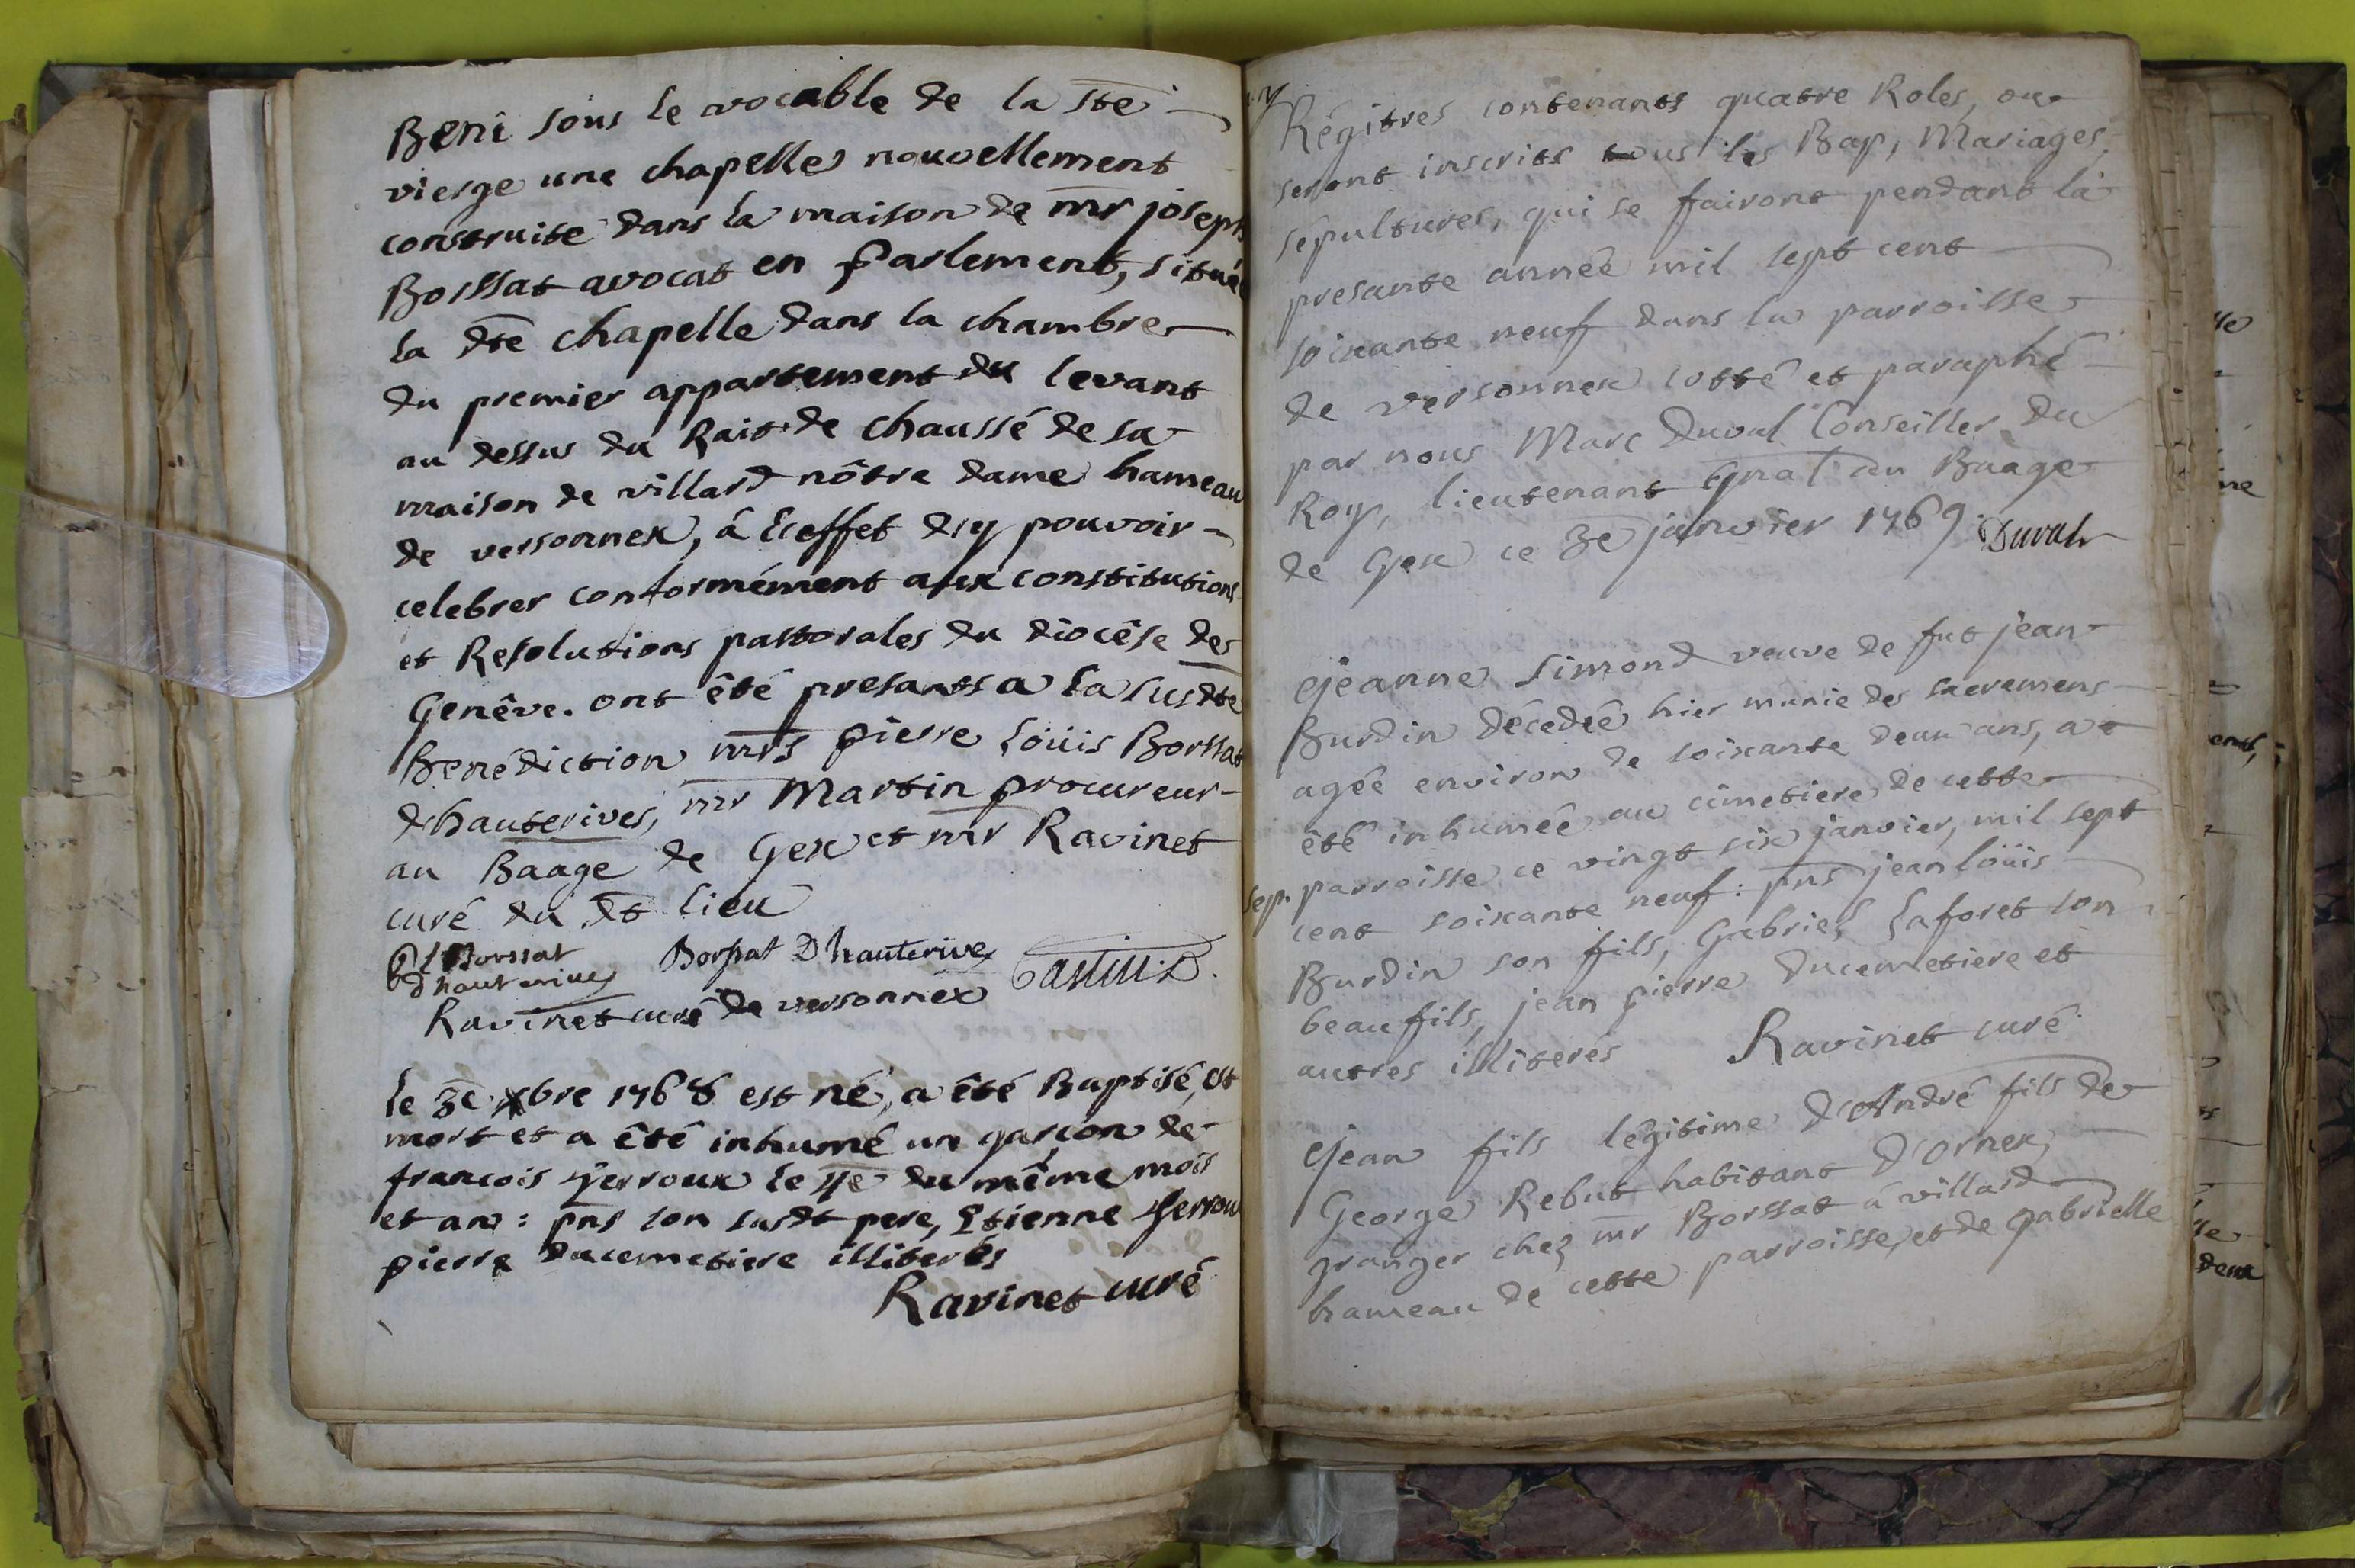 Beni sous le vocable de la ste
vierge une chapelle nouvellement
construite dans la maison de mr joseph
Borssat avocat en parlement, située
la dte chapelle dans la chambre
du premier appartement du levant
au dessus du Rait de chaussé de sa
maison de villard nôtre dame hameau
de versonnex, â l'effet d'y pouvoir
celebrer conformément aux constitutions
et Resolutions pastorales du diocêse de
Genêve. ont êté presants a la susdte
Benédiction mrs pierre Loüis Borssat
dhauterives, mr Martin procureur
au Baage de Gex et mr Ravinet
curé du dt lieu
Borssat
d'hauterives Borssat Dhauterive
Ravinet curé de versonnex
le 3e xbre 1768 est né, a êté Baptisé, est
mort et a êté inhumé un garçon de
francois yerroux le 4e du même mois
et an : pns son susdt pere, Etienne yerroux
pierre ducemetiere illiterés
Ravinet curé
Régitres contenants quatre Roles, ou
seront inscrits tous les Bap, Mariages,
sepultures, qui se fairont pendant la
presante année mil sept cent
soixante neuf dans la parroisse
de versonnex cotté et paraphé
par nous Marc Duval Conseiller du
Roy, lieutenant Gnal au Baage
de Gex ce 3e janvier 1769 Duval
Jeanne Simond veuve de fut jean
Burdin décedée hier munie des sacremens
agée environ de soixante deux ans, a
êté inhumée au cimetiere de cette
sep. parroisse ce vingt six janvier, mil sept
cent soixante neuf : pns jean loüis
Burdin son fils, Gabriel Laforet son
beau fils, jean pierre ducemetiere et
autres illiterés Ravinet curé
Jean fils légitime d'André fils de
George Rebut habitant d'ornex,
granger chez mr Borssat â villard
hameau de cette parroisse, et de gabrielle